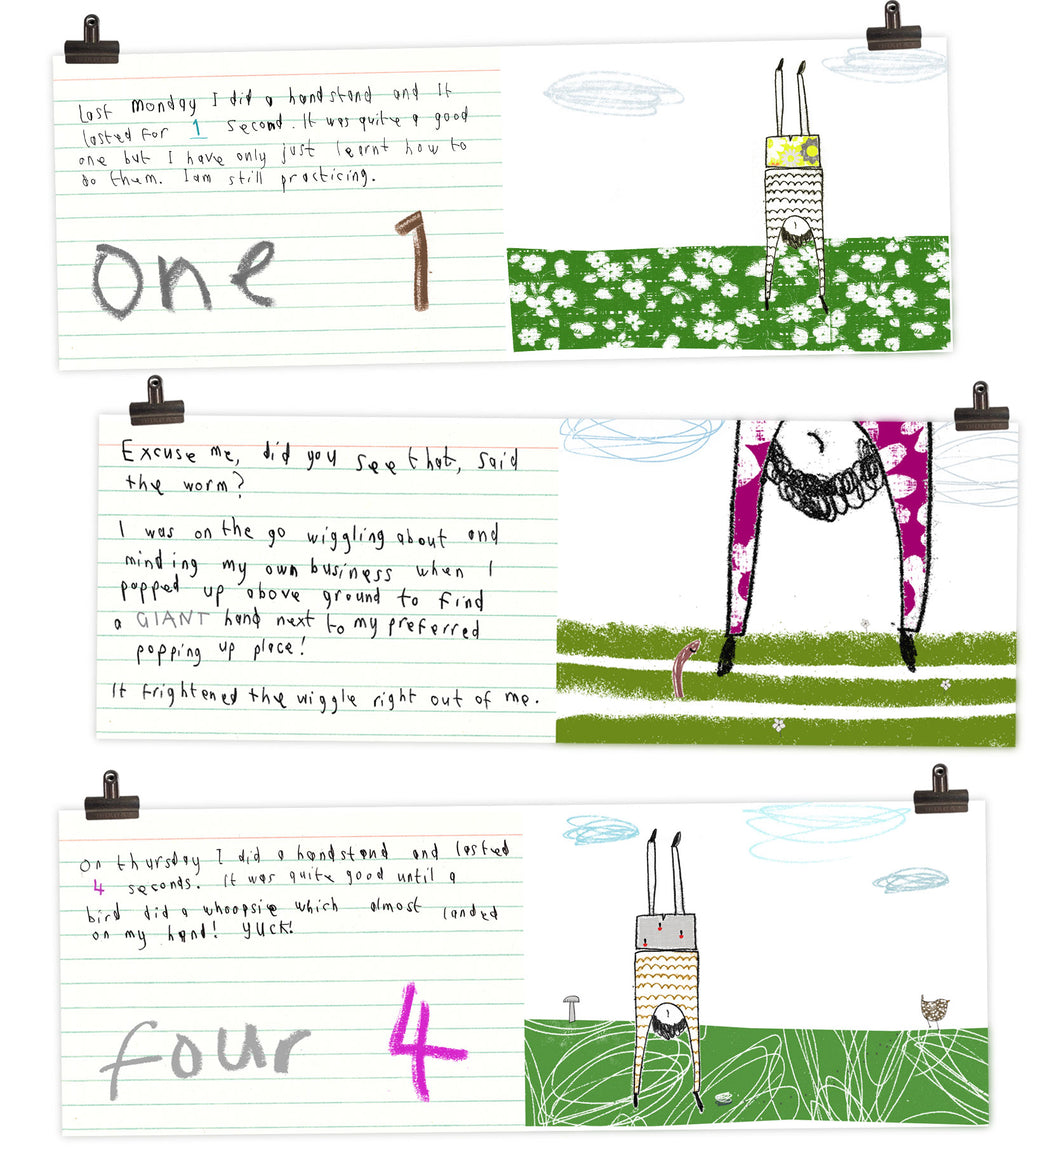 Last monday I did a handstand and it
lasted for 1 second. It was quite a good
one but I have only just learnt how to
do them. I am still practicing.
one 1
Excuse me, did you see that, said
the worm?
I was on the go wiggling about and
minding my own business when I
popped up above ground to find
a GIANT hand next to my preferred
popping up place!
It frightened the wiggle right out of me.
On thursday I did a handstand and lasted
4 seconds. It was quite good until a
bird did a whoopsie which almost landed
on my hand! YUCK!
four 4